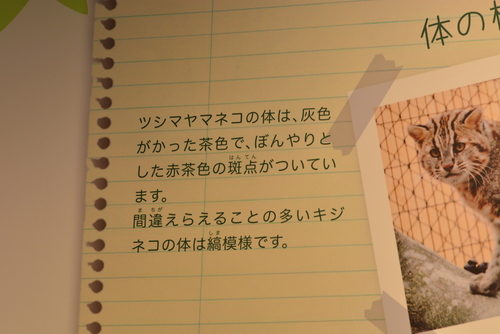 体の
ツシマヤマネコの体は、灰色
がかった茶色で、ぼんやりと
した赤茶色の斑点がついてい
ます。
間違えらえることの多いキジ
ネコの体は縞模様です。